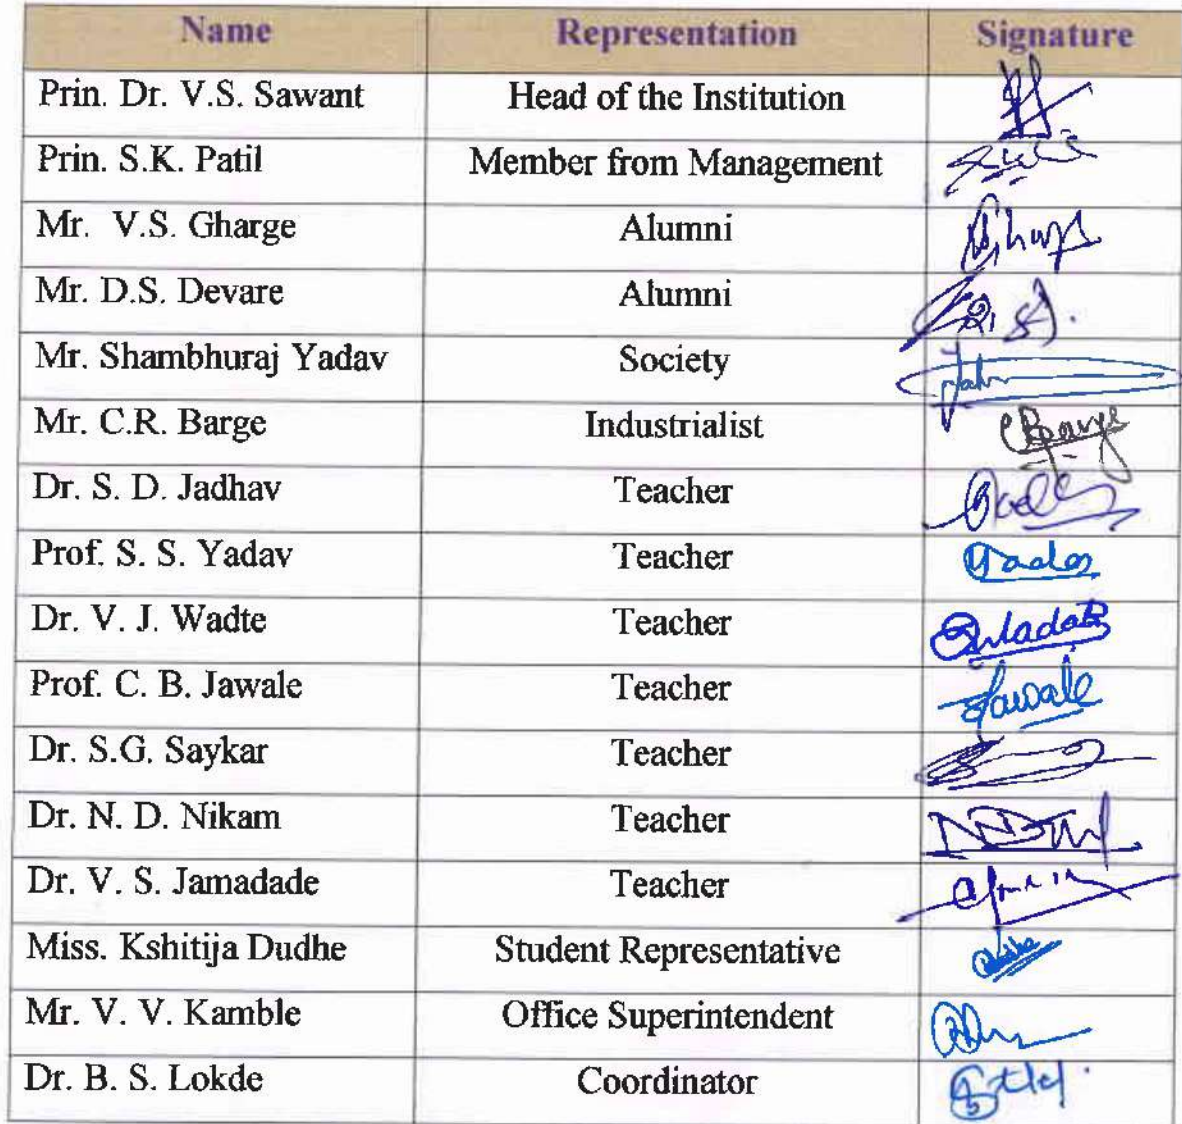 Name Representation Signature
Prin. Dr. V.S. Sawant Head of the Institution
Prin. S.K. Patil Member from Management
Mr. V.S. Gharge Alumni
Mr. D.S. Devare Alumni
Mr. Shambhuraj Yadav Society
Mr. C.R. Barge Industrialist CBarge
Dr. S. D. Jadhav Teacher
Prof. S. S. Yadav Teacher
Dr. V. J. Wadte Teacher
Prof. C. B. Jawale Teacher Jawale
Dr. S.G. Saykar Teacher
Dr. N. D. Nikam Teacher
Dr. V. S. Jamadade Teacher
Miss. Kshitija Dudhe Student Representative
Mr. V. V. Kamble Office Superintendent
Dr. B. S. Lokde Coordinator